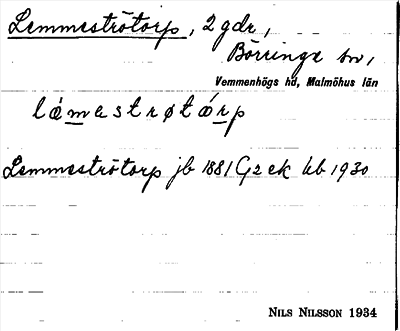 Lemmeströtorp, 2 gdr,
Börringe sn,
Vemmenhögs hd, Malmöhus län
lǽmestrøtárp
Lemmeströtorp jb 1881 G2 ek kb 1930
NILS NILSSON 1934